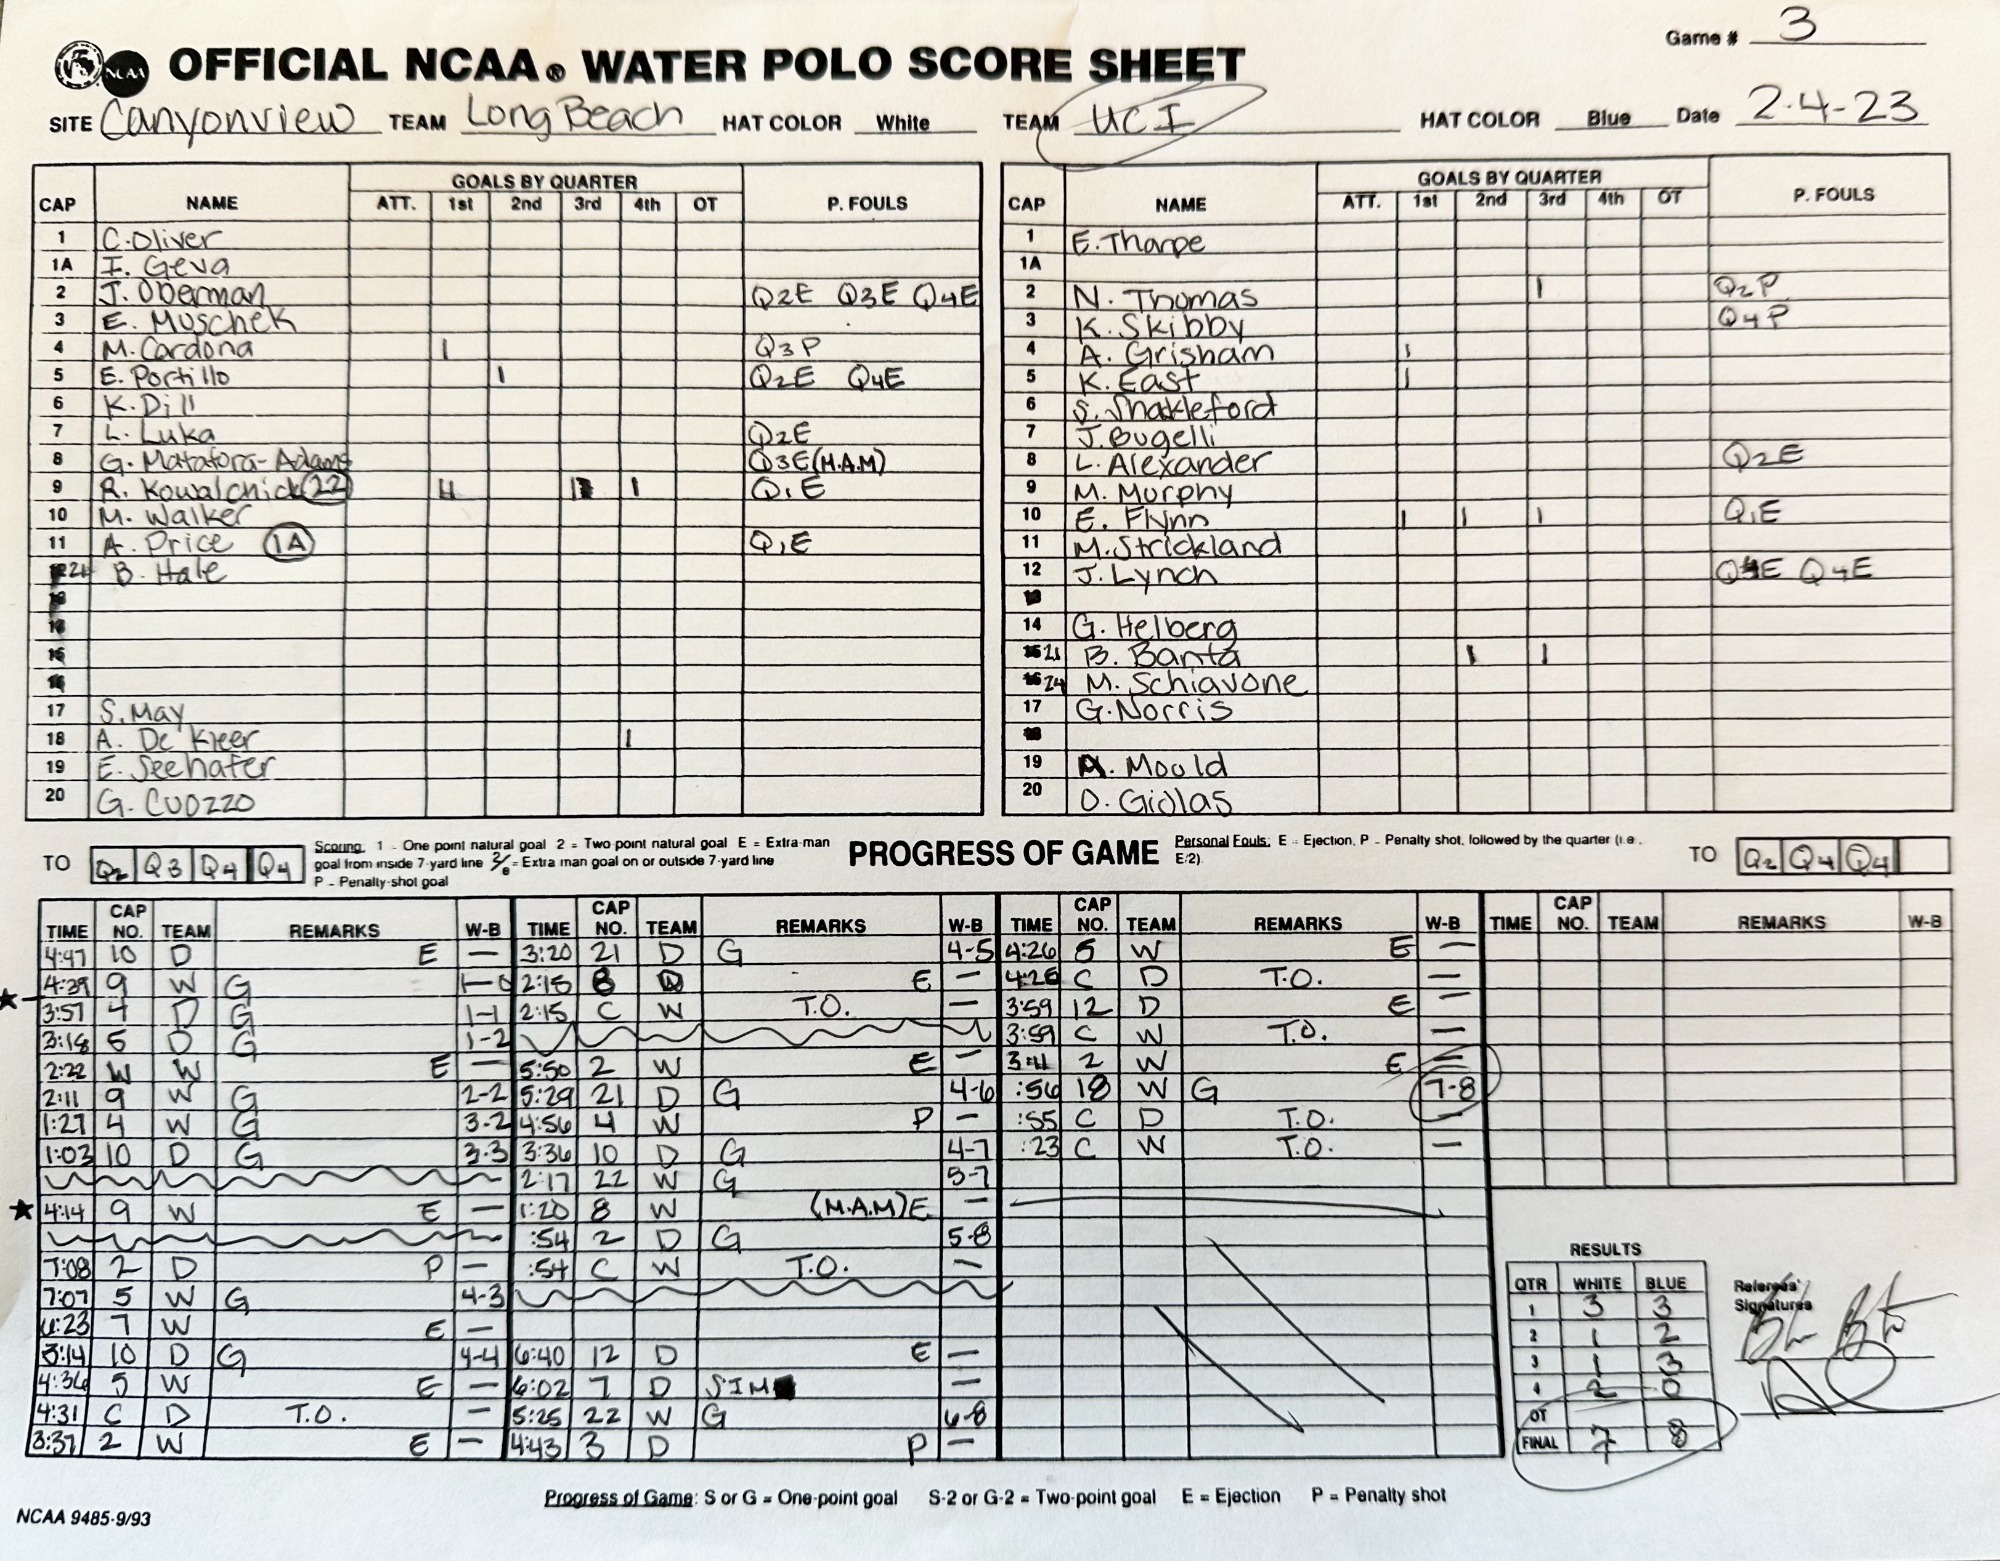 Game # 3
NCAA OFFICIAL NCAA® WATER POLO SCORE SHEET
SITE Canyonview TEAM Long Beach HAT COLOR White TEAM UCI HAT COLOR Blue Date 2-4-23
CAP NAME GOALS BY QUARTER P. FOULS
ATT. 1st 2nd 3rd 4th OT
1 C. Oliver
1A I. Geva
2 J. Oberman Q2E Q3E Q4E
3 E. Muschek
4 M. Cardona 1 Q3P
5 E. Portillo 1 Q2E Q4E
6 K. Dill
7 L. Luka Q2E
8 G. Matafora-Adams Q3E (M.A.M)
9 R. Kowalchick 22 11 1 1 Q1E
10 M. Walker
11 A. Price 1A Q1E
21 B. Hale
17 S. May
18 A. De Kleer 1
19 E. Seehafer
20 G. Cuozzo
CAP NAME GOALS BY QUARTER P. FOULS
ATT. 1st 2nd 3rd 4th OT
1 E. Tharpe
1A
2 N. Thomas 1 Q2P
3 K. Skibby Q4P
4 A. Grisham 1
5 K. East 1
6 S. Shakleford
7 J. Bugelli
8 L. Alexander Q2E
9 M. Murphy
10 E. Flynn 1 1 1 Q1E
11 M. Strickland
12 J. Lynch Q4E Q4E
14 G. Helberg
21 B. Banta 1 1
24 M. Schiavone
17 G. Norris
19 A. Mould
20 D. Giolas
TO Q2 Q3 Q4 Q4
Scoring: 1 - One point natural goal 2 = Two-point natural goal E = Extra-man
goal from inside 7-yard line 2/e = Extra man goal on or outside 7-yard line
P - Penalty-shot goal
PROGRESS OF GAME
Personal Fouls: E - Ejection, P - Penalty shot, followed by the quarter (i.e.,
E/2).
TO Q2 Q4 Q4
TIME CAP NO. TEAM REMARKS W-B
4:47 10 D E —
4:39 9 W G 1-0
3:57 4 D G 1-1
3:18 5 D G 1-2
2:22 W W E —
2:11 9 W G 2-2
1:27 4 W G 3-2
1:03 10 D G 3-3
4:14 9 W E —
7:08 2 D P —
7:07 5 W G 4-3
6:23 7 W E —
5:14 10 D G 4-4
4:36 5 W E —
4:31 C D T.O. —
3:37 2 W E —
TIME CAP NO. TEAM REMARKS W-B
3:20 21 D G 4-5
2:15 8 D E —
2:15 C W T.O. —
5:50 2 W E —
5:29 21 D G 4-6
4:56 4 W P —
3:36 10 D G 4-7
2:17 22 W G 5-7
1:20 8 W (M.A.M) E —
:54 2 D G 5-8
:54 C W T.O. —
6:40 12 D E —
6:02 7 D SIM —
5:25 22 W G 6-8
4:43 3 D P —
TIME CAP NO. TEAM REMARKS W-B
4:26 5 W E —
4:26 C D T.O. —
3:59 12 D E —
3:59 C W T.O. —
3:41 2 W E —
:56 18 W G 7-8
:55 C D T.O. —
:23 C W T.O. —
TIME CAP NO. TEAM REMARKS W-B
RESULTS
QTR WHITE BLUE
1 3 3
2 1 2
3 1 3
4 2 0
OT
FINAL 7 8
Referees'
Signatures
Progress of Game: S or G = One-point goal S-2 or G-2 = Two-point goal E = Ejection P = Penalty shot
NCAA 9485-9/93